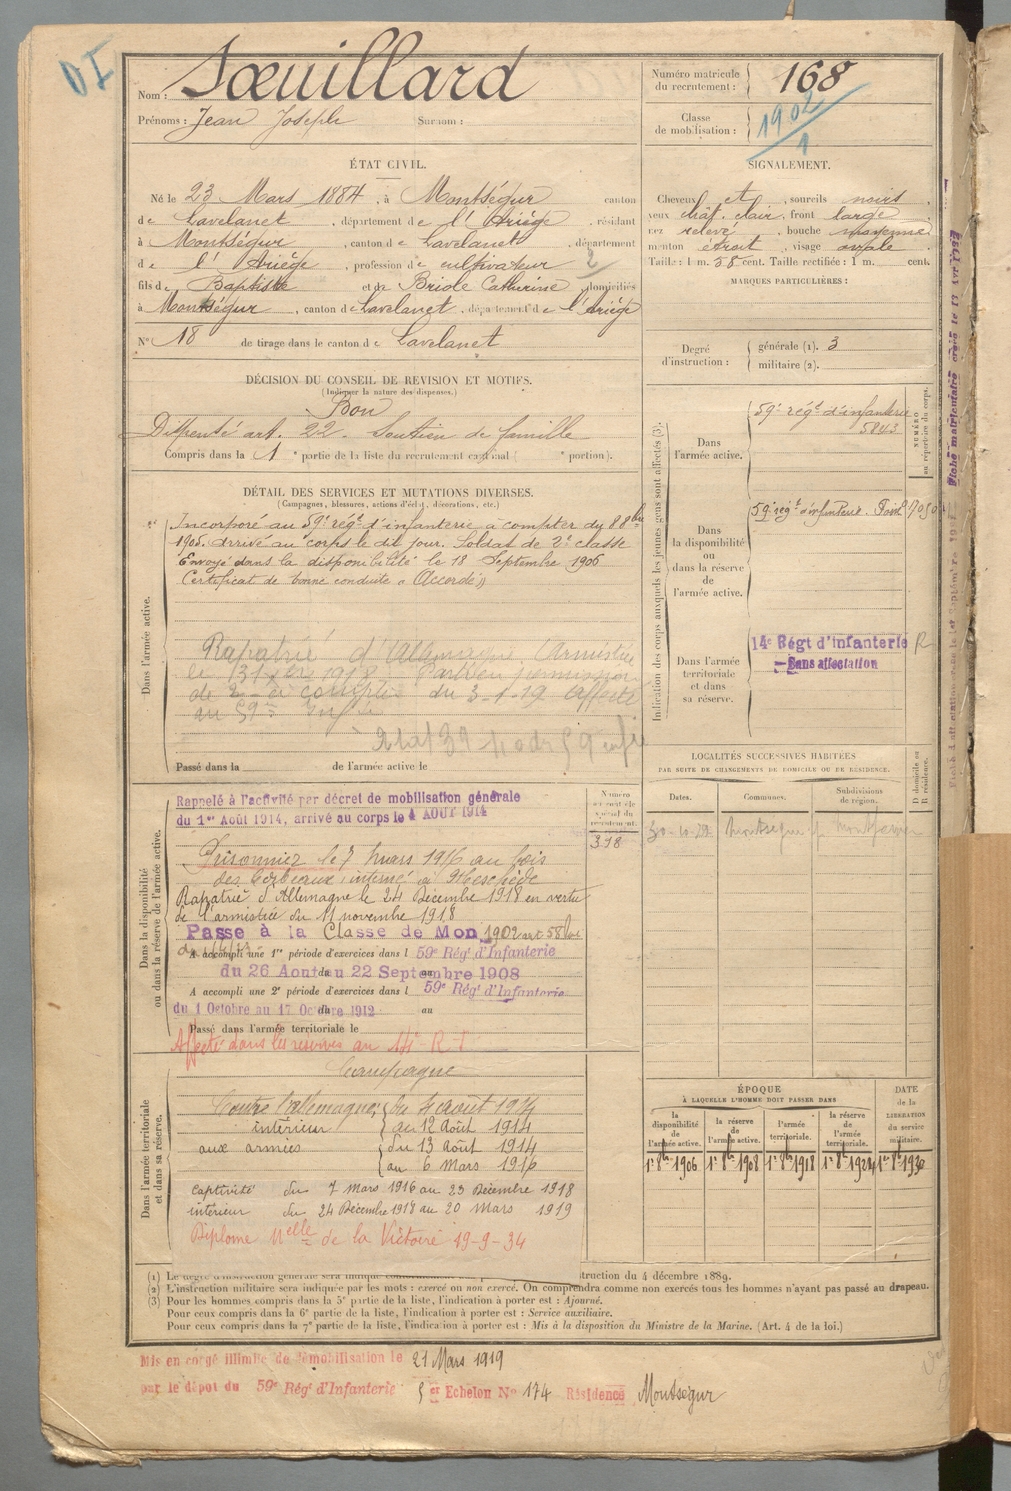 DI
Nom : Sœuillard
Prénoms : Jean Joseph Surnom :
Numéro matricule du recrutement : 168
Classe de mobilisation : 1902
1
ÉTAT CIVIL.
Né le 23 Mars 1884, à Montségur canton
de Lavelanet, département de l'Ariège, résidant
à Montségur, canton de Lavelanet, département
de l'Ariège, profession de cultivateur 2
fils de Baptiste et de Briole Catherine domiciliés
à Montségur, canton de Lavelanet, département de l'Ariège
N° 18 de tirage dans le canton de Lavelanet
SIGNALEMENT.
Cheveux et, sourcils noirs,
yeux chât. clair, front large
nez relevé, bouche moyenne
menton étroit, visage ovale
Taille : 1 m. 58 cent. Taille rectifiée : 1 m. cent.
MARQUES PARTICULIÈRES :
Degré d'instruction :
générale (1). 3
militaire (2).
DÉCISION DU CONSEIL DE REVISION ET MOTIFS.
(Indiquer la nature des dispenses.)
Bon
Dispensé art. 22. Soutien de famille
Compris dans la 1e partie de la liste du recrutement cantonal ( e portion).
DÉTAIL DES SERVICES ET MUTATIONS DIVERSES.
(Campagnes, blessures, actions d'éclat, décorations, etc.)
Dans l'armée active.
Incorporé au 59e régt d'infanterie à compter du 8 8bre
1905. arrivé au corps le dit jour. Soldat de 2e classe
Envoyé dans la disponibilité le 18 Septembre 1906
Certificat de bonne conduite « Accordé »
Rapatrié d'Allemagne, Armistice
le 31 Xbre 1918
de 2 à compter du 3-1-19 Affecté
au 59e
Passé dans la de l'armée active le
Indication des corps auxquels les jeunes gens sont affectés (3).
NUMÉRO au répertoire du corps.
Dans l'armée active.
59e régt d'infanterie
5843
Dans la disponibilité ou dans la réserve de l'armée active.
59e régt d'infanterie.
Dans l'armée territoriale et dans sa réserve.
14e Régt d'infanterie R
Sans affectation
LOCALITÉS SUCCESSIVES HABITÉES
PAR SUITE DE CHANGEMENTS DE DOMICILE OU DE RÉSIDENCE.
Dates. Communes. Subdivisions de région. D domicile ou R résidence.
Montségur
Dans la disponibilité ou dans la réserve de l'armée active.
Rappelé à l'activité par décret de mobilisation générale
du 1er Août 1914, arrivé au corps le 4 AOUT 1914
318
Prisonnier le 7 mars 1916 au bois
des Corbeaux, interné à Meschede
Rapatrié d'Allemagne le 24 Décembre 1918 en vertu
de l'armistice du 11 novembre 1918
Passe à la Classe de Mon 1902 art 58
A accompli une 1re période d'exercices dans l 59e Rég' d'Infanterie
du 26 Aout au 22 Septembre 1908
A accompli une 2e période d'exercices dans l 59e Rég' d'Infanterie
du 1 Octobre au 17 Octobre 1912 au
Passé dans l'armée territoriale le
Affecté dans les réserves au 14e R.I.
Dans l'armée territoriale et dans sa réserve.
Campagne
Contre l'Allemagne du 4 août 1914
intérieur au 12 Août 1914
aux armées du 13 Août 1914
au 6 Mars 1916
captivité du 7 Mars 1916 au 23 Décembre 1918
intérieur du 24 Décembre 1918 au 20 Mars 1919
Diplome Nelle de la Victoire 19-9-34
ÉPOQUE
À LAQUELLE L'HOMME DOIT PASSER DANS
DATE de la LIBÉRATION du service militaire.
la disponibilité de l'armée active. la réserve de l'armée active. l'armée territoriale. la réserve de l'armée territoriale.
1er 8bre 1906 1er 8bre 1908 1er 8bre 1918 1er 8bre 1924 1er 8bre 1930
(1) Le degré d'instruction générale sera indiqué truction du 4 décembre 1889.
(2) L'instruction militaire sera indiquée par les mots : exercé ou non exercé. On comprendra comme non exercés tous les hommes n'ayant pas passé au drapeau.
(3) Pour les hommes compris dans la 5e partie de la liste, l'indication à porter est : Ajourné.
Pour ceux compris dans la 6e partie de la liste, l'indication à porter est : Service auxiliaire.
Pour ceux compris dans la 7e partie de la liste, l'indication à porter est : Mis à la disposition du Ministre de la Marine. (Art. 4 de la loi.)
Mis en congé illimité de démobilisation le 21 Mars 1919
par le dépot du 59e Rég' d'Infanterie 5 er Echelon N° 174 Résidence Montségur